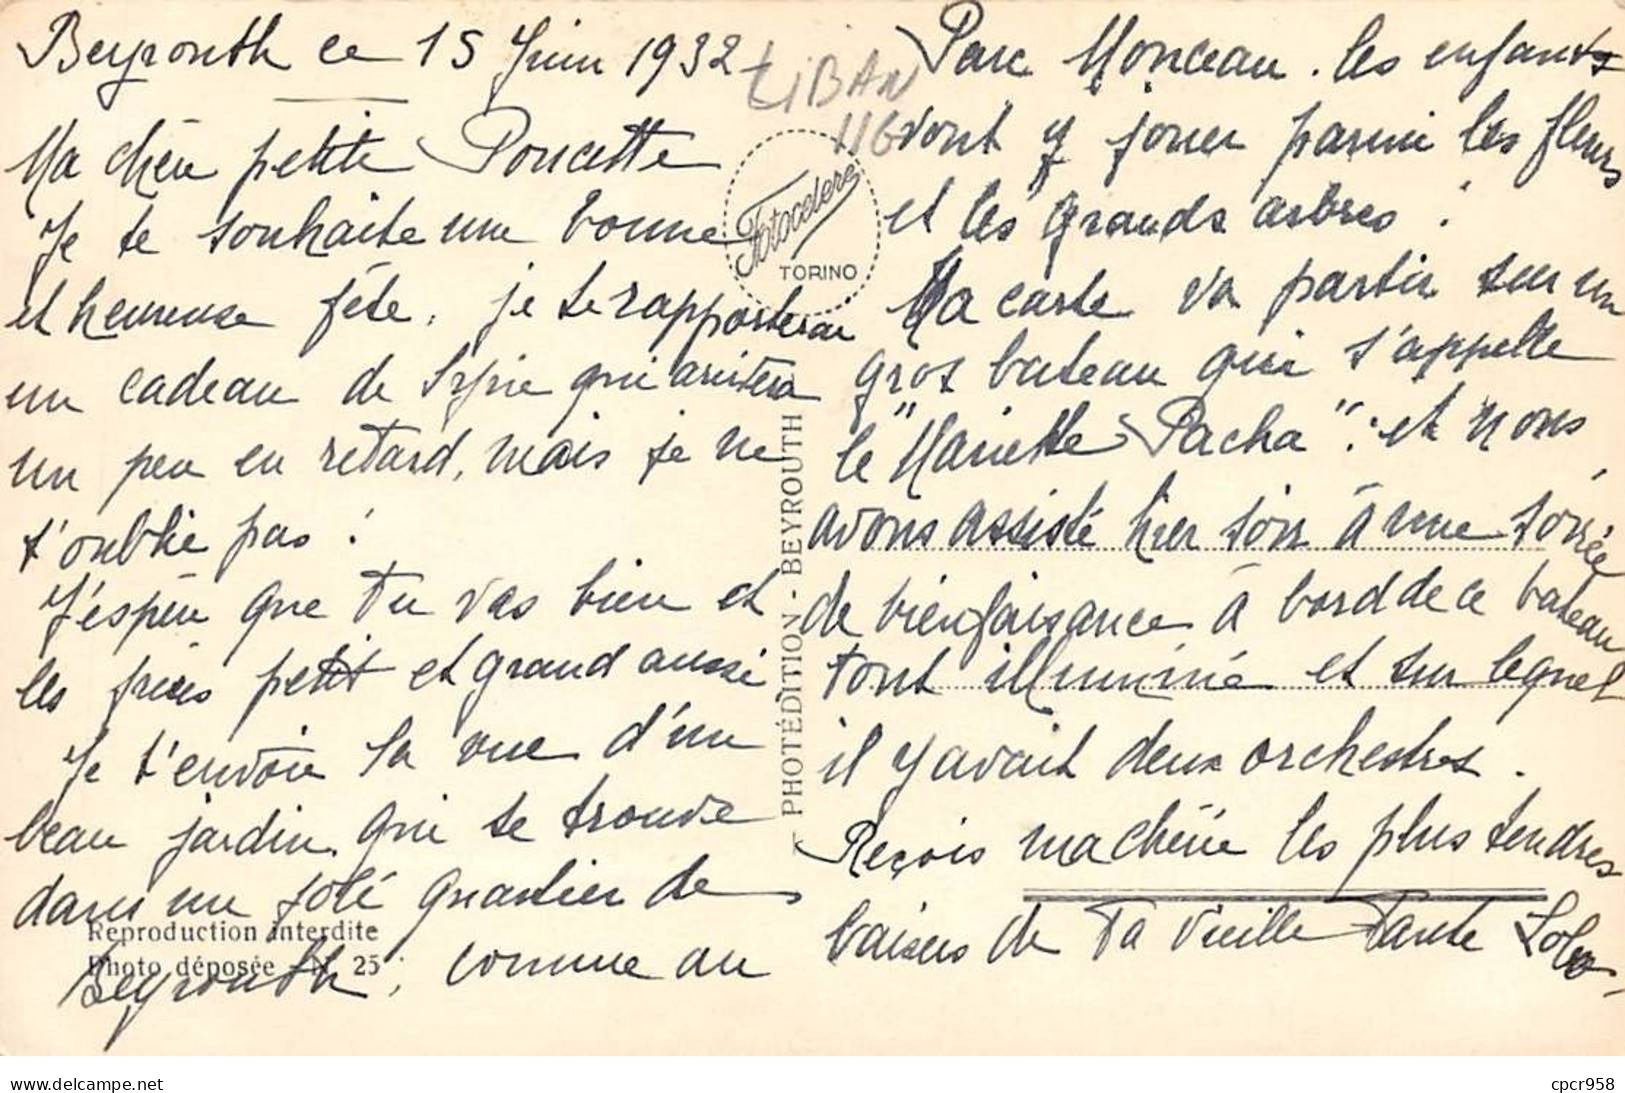 Beyrouth ce 15 Juin 1932
Ma chère petite Poucette
Je te souhaite une bonne
et heureuse fête, je te rapporterai
un cadeau de Syrie qui arrivera
un peu en retard, mais je ne
t'oublie pas !
J'espère que tu vas bien et
les frères petit et grand aussi
Je t'envoie la vue d'un
beau jardin qui se trouve
dans un joli quartier de
Beyrouth, comme au
Reproduction interdite
Photo déposée - N. 25
LIBAN
116
Fotocelere
TORINO
PHOTÉDITION - BEYROUTH
Parc Monceau. les enfants
vont y jouer parmi les fleurs
et les grands arbres !
Ma carte va partir sur un
gros bateau qui s'appelle
le "Mariette Pacha". et nous
avons assisté hier soir à une soirée
de bienfaisance à bord de ce bateau
tout illuminé et sur lequel
il y avait deux orchestres.
Reçois ma chérie les plus tendres
baisers de ta vieille Tante
cpcr958
www.delcampe.net